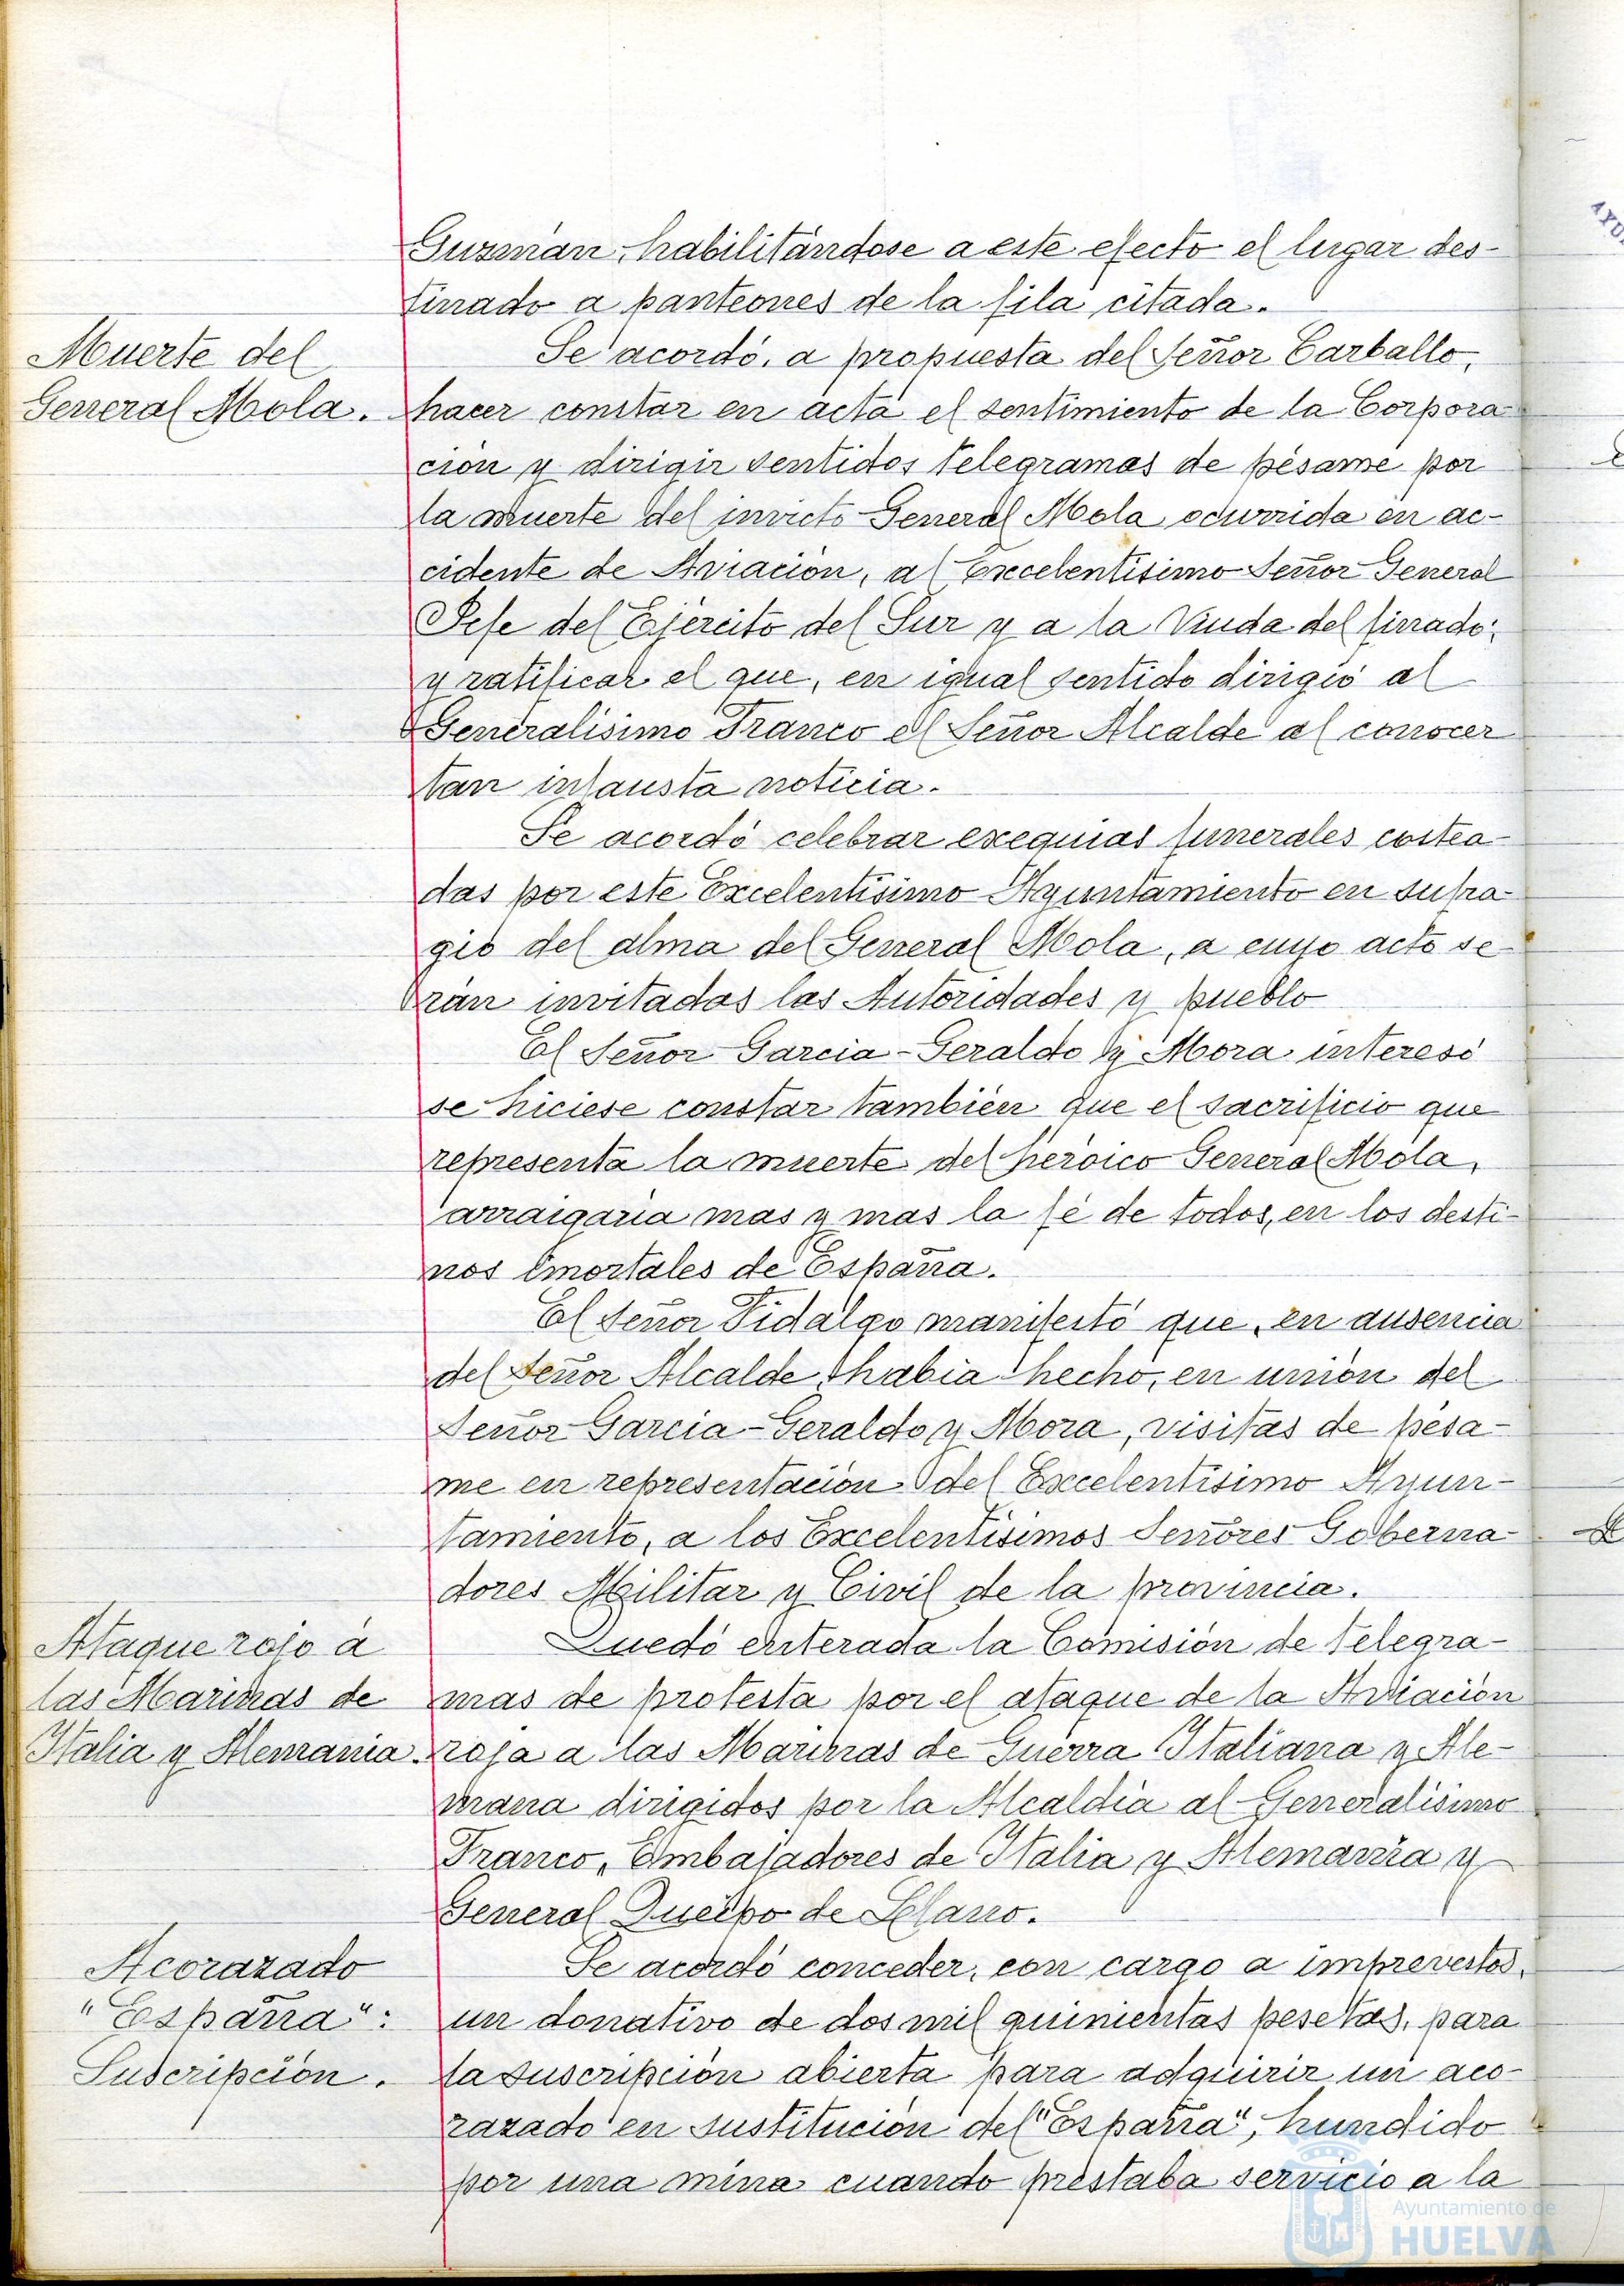 Guzmán, habilitándose a este efecto el lugar des-
tinado a panteones de la fila citada.
Muerte del
General Mola.
Se acordó, a propuesta del Señor Carballo,
hacer constar en acta el sentimiento de la Corpora-
ción y dirigir sentidos telegramas de pésame por
la muerte del invicto General Mola ocurrida en ac-
cidente de Aviación, al Excelentísimo Señor General
Jefe del Ejército del Sur y a la Viuda del finado;
y ratificar el que, en igual sentido dirigió al
Generalísimo Franco el Señor Alcalde al conocer
tan infausta noticia.
Se acordó celebrar exequias funerales costea-
das por este Excelentísimo Ayuntamiento en sufra-
gio del alma del General Mola, a cuyo acto se-
rán invitadas las Autoridades y pueblo
El Señor Garcia-Geraldo y Mora interesó
se hiciese constar también que el sacrificio que
representa la muerte del heróico General Mola,
arraigaria mas y mas la fé de todos, en los desti-
nos imortales de España.
El Señor Fidalgo manifestó que, en ausencia
del Señor Alcalde, habia hecho, en unión del
Señor Garcia-Geraldo y Mora, visitas de pésa-
me en representación del Excelentísimo Ayun-
tamiento, a los Excelentísimos Señores Goberna-
dores Militar y Civil de la provincia.
Ataque rojo á
las Marinas de
Italia y Alemania.
Quedó enterada la Comisión de telegra-
mas de protesta por el ataque de la Aviación
roja a las Marinas de Guerra Italiana y Ale-
mana dirigidos por la Alcaldia al Generalísimo
Franco, Embajadores de Italia y Alemania y
General Queipo de Llano.
Acorazado
"España":
Suscripción.
Se acordó conceder, con cargo a imprevestos,
un donativo de dos mil quinientas pesetas, para
la suscripción abierta para adquirir un aco-
razado en sustitución del "España", hundido
por una mina cuando prestaba servicio a la
Ayuntamiento de
HUELVA